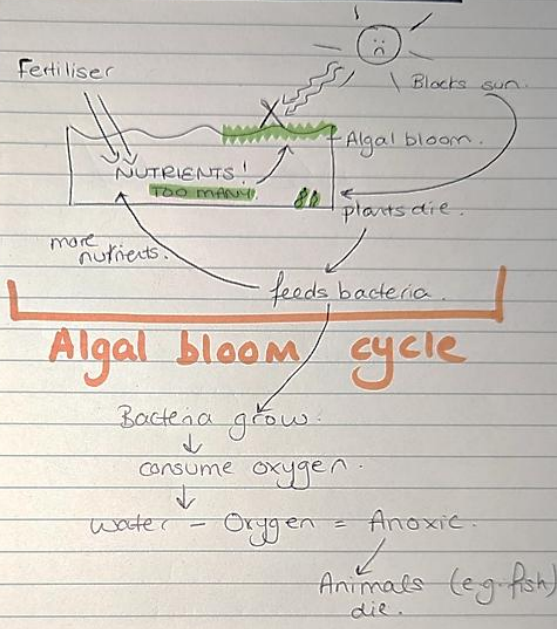 Fertiliser
Blocks sun.
Algal bloom.
NUTRIENTS!
TOO MANY.
plants die.
more
nutrients.
feeds bacteria.
Algal bloom cycle
Bacteria grow.
consume oxygen.
Water - Oxygen = Anoxic.
Animals (e.g. fish)
die.